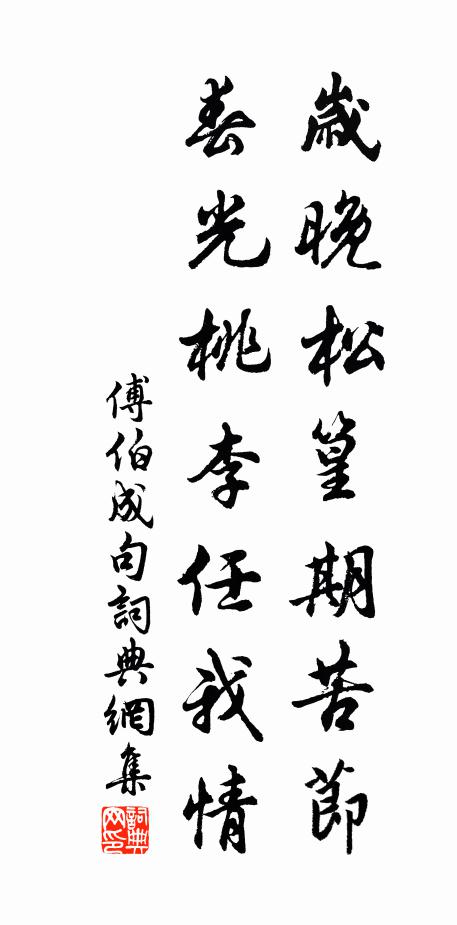 歲晚松篁期苦節
春光桃李任我情
傅伯成句詞典網集
詞典网印